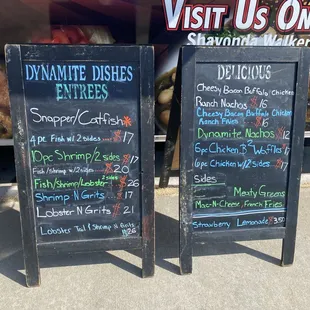 VISIT US ON
Shavonda Walker
DYNAMITE DISHES
ENTREES
Snapper/Catfish*
4pc Fish w/ 2 sides $17
10pc Shrimp/2 sides $17
Fish/Shrimp w/2 sides $20
Fish/Shrimp/Lobster $26
Shrimp N Grits $17
Lobster N Grits $21
Lobster Tail/Shrimp
DELICIOUS
Cheesy Bacon Buffalo Chicken
Ranch Nachos $16
Cheesy Bacon Buffalo
Ranch Fries
Dynamite Nachos $12
6pc Chicken/2 Waffles $17
6pc Chicken w/2 sides $17
Sides
Meaty Greens
Mac-N-Cheese, French Fries
Strawberry Lemonade